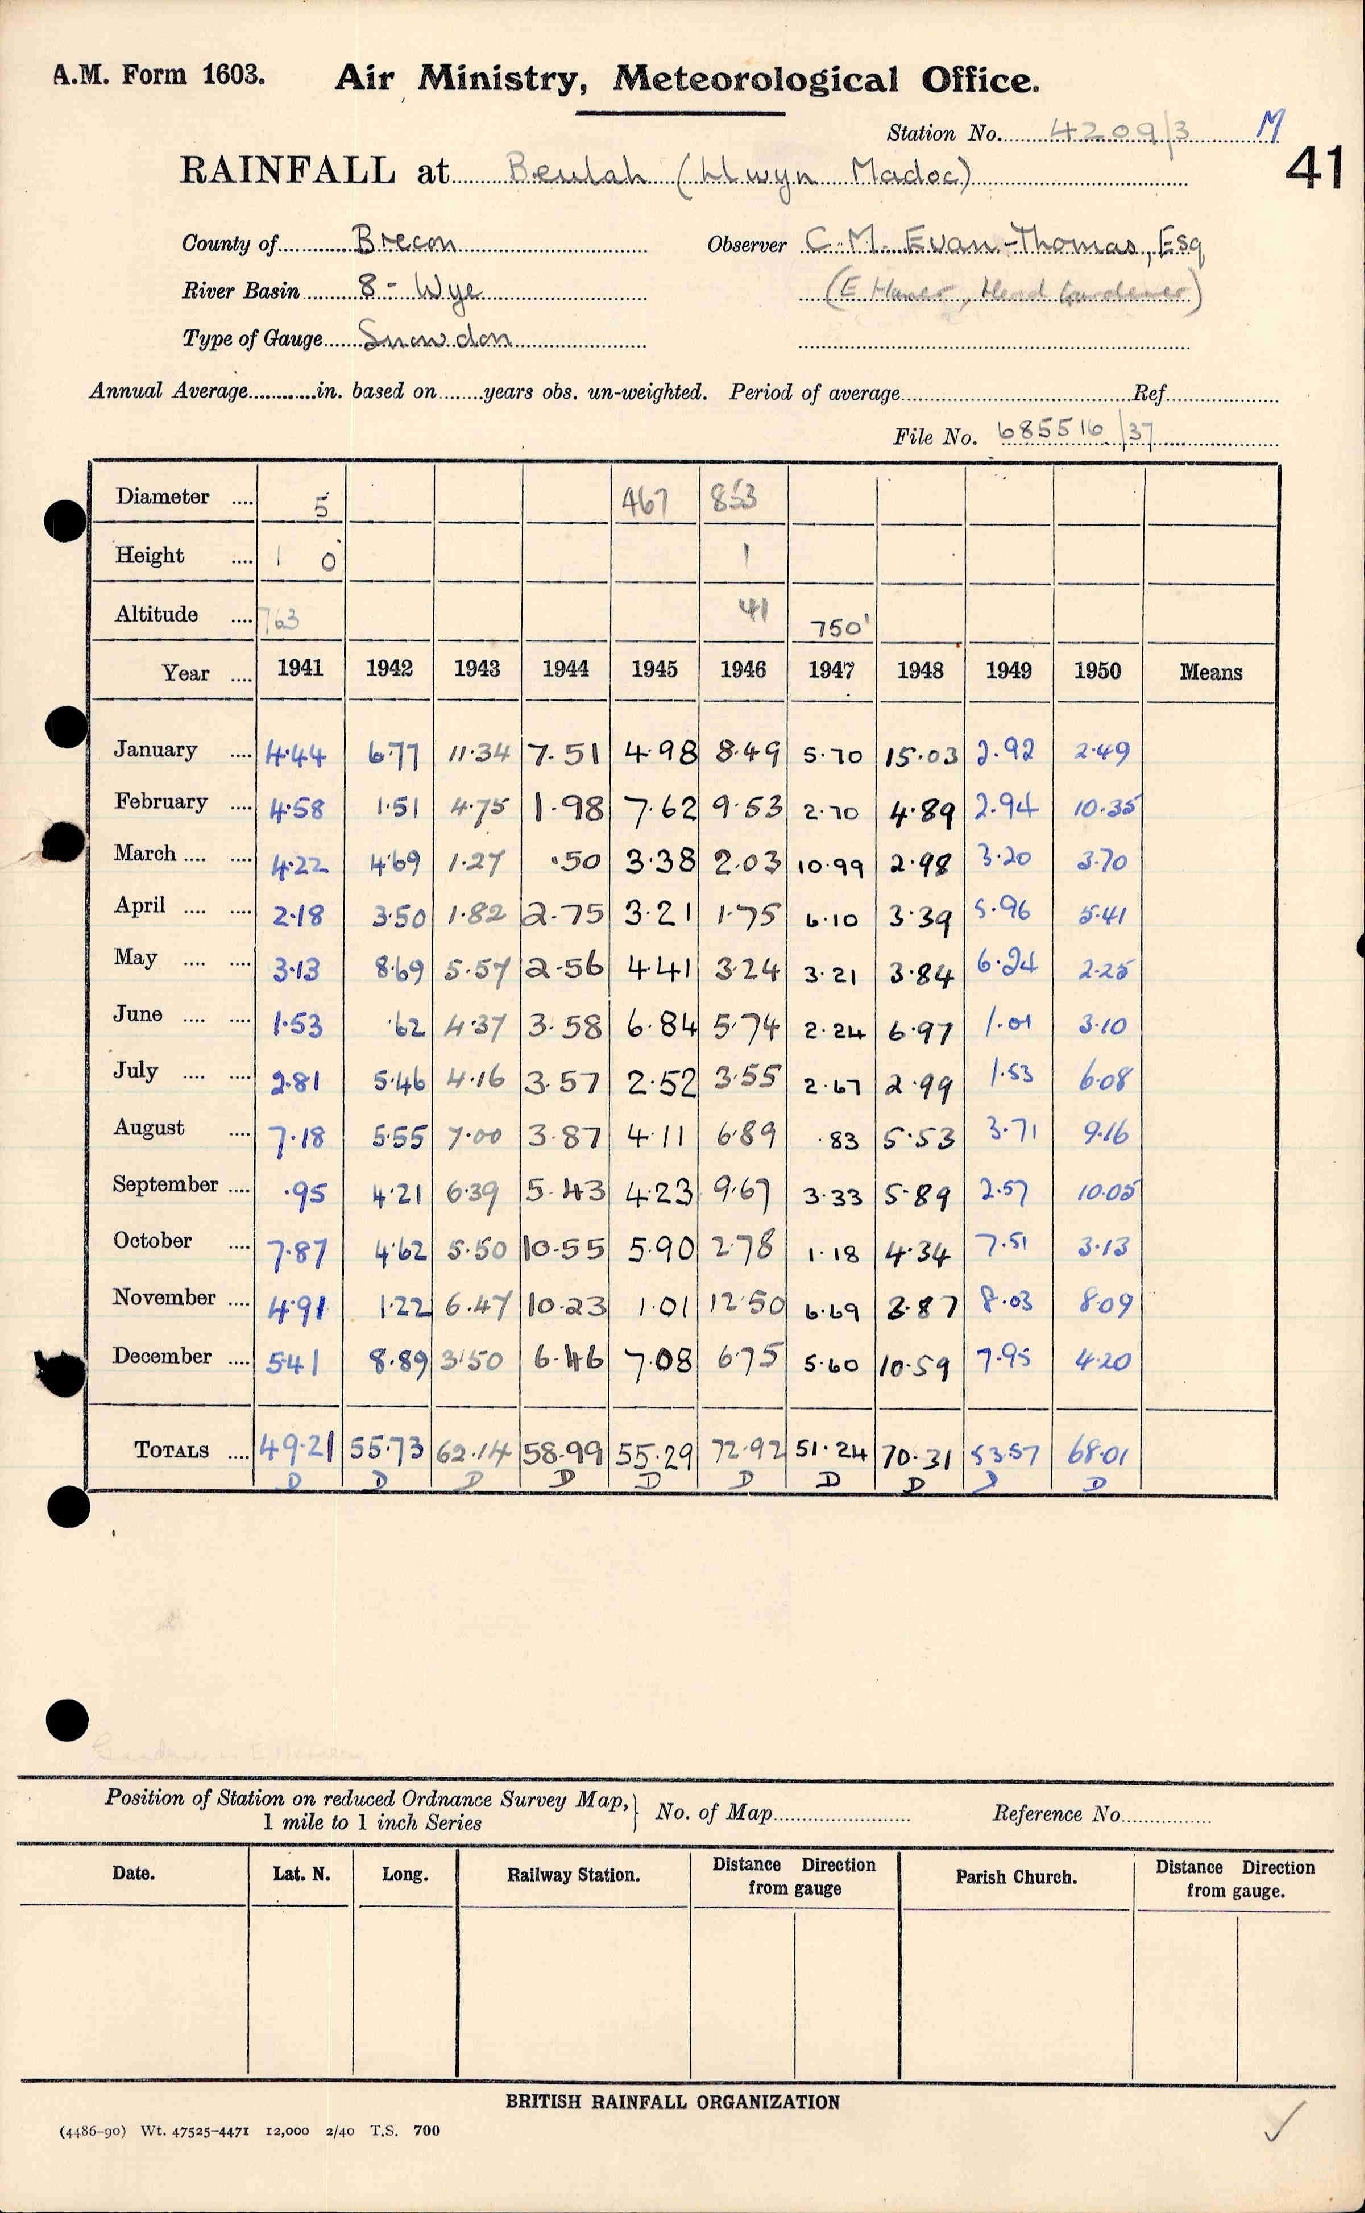 A.M. Form 1603. Air Ministry, Meteorological Office.
Station No. 4209/3 M
41
RAINFALL at Beulah (Llwyn Madoc)
County of Brecon Observer C. M. Evan-Thomas, Esq
River Basin 8 - Wye (E Hamer, Head Gardener)
Type of Gauge Snowdon
Annual Average............in. based on........years obs. un-weighted. Period of average Ref.
File No. 685516/37
Diameter .... 5 467 853
Height .... 1 0 1
Altitude .... 763 41 750'
Year .... 1941 1942 1943 1944 1945 1946 1947 1948 1949 1950 Means
January .... 4.44 6.77 11.34 7.51 4.98 8.49 5.70 15.03 2.92 2.49
February .... 4.58 1.51 4.75 1.98 7.62 9.53 2.70 4.89 2.94 10.35
March .... .... 4.22 4.69 1.27 .50 3.38 2.03 10.99 2.98 3.20 3.70
April .... .... 2.18 3.50 1.82 2.75 3.21 1.75 6.10 3.39 5.96 5.41
May .... .... 3.13 8.69 5.57 2.56 4.41 3.24 3.21 3.84 6.24 2.25
June .... .... 1.53 .62 4.37 3.58 6.84 5.74 2.24 6.97 1.01 3.10
July .... .... 2.81 5.46 4.16 3.57 2.52 3.55 2.67 2.99 1.53 6.08
August .... 7.18 5.55 7.00 3.87 4.11 6.89 .83 5.53 3.71 9.16
September .... .95 4.21 6.39 5.43 4.23 9.67 3.33 5.89 2.57 10.05
October .... 7.87 4.62 5.50 10.55 5.90 2.78 1.18 4.34 7.51 3.13
November .... 4.91 1.22 6.47 10.23 1.01 12.50 6.69 3.87 8.03 8.09
December .... 5.41 8.89 3.50 6.46 7.08 6.75 5.60 10.59 7.95 4.20
TOTALS .... 49.21 55.73 62.14 58.99 55.29 72.92 51.24 70.31 53.57 68.01
D D D D D D D D D D
Position of Station on reduced Ordnance Survey Map, No. of Map Reference No.
1 mile to 1 inch Series
Date. Lat. N. Long. Railway Station. Distance Direction from gauge Parish Church. Distance Direction from gauge.
BRITISH RAINFALL ORGANIZATION
(4486-90) Wt. 47525-4471 12,000 2/40 T.S. 700